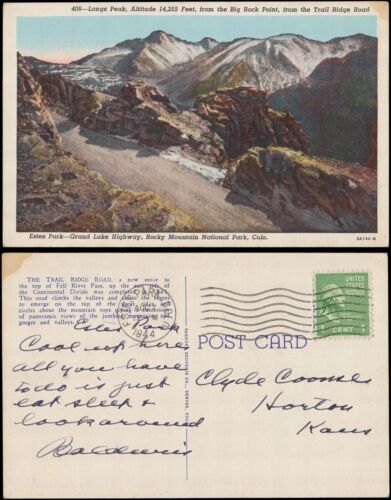 406—Longs Peak, Altitude 14,255 Feet, from the Big Rock Point, from the Trail Ridge Road
Estes Park—Grand Lake Highway, Rocky Mountain National Park, Colo.
THE TRAIL RIDGE ROAD, a new route to
the top of Fall River Pass, up the east side of
the Continental Divide was completed
This road climbs the valleys and
to emerge on the top of the great
circles about the mountain tops
of panoramic views of the jumbled mountains
gorges and valleys.
ESTES PARK
1944
UNITED STATES POSTAGE
1 CENT 1
POST CARD
Estes Park
Cool up here
all you have
to do is just
eat sleep &
look around
Baldwins
Clyde Coomes
Horton
Kans